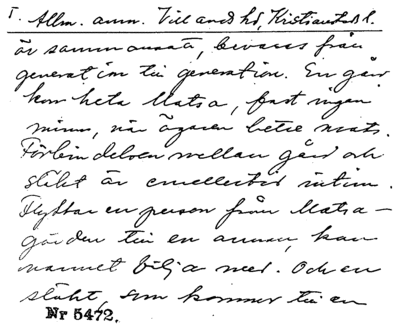 I. Allm. anm. Villands hd, Kristianstads l.
är sammansatt, bevaras från
generation till generation. En gård
kan heta Matsa, fast ingen
minns, när ägaren hette Mats.
Förbindelsen mellan gård och
släkt är emellertid intim.
Flyttar en person från Matsa-
gården till en annan, kan
namnet följa med. Och en
släkt, som kommer till en
Nr 5472.